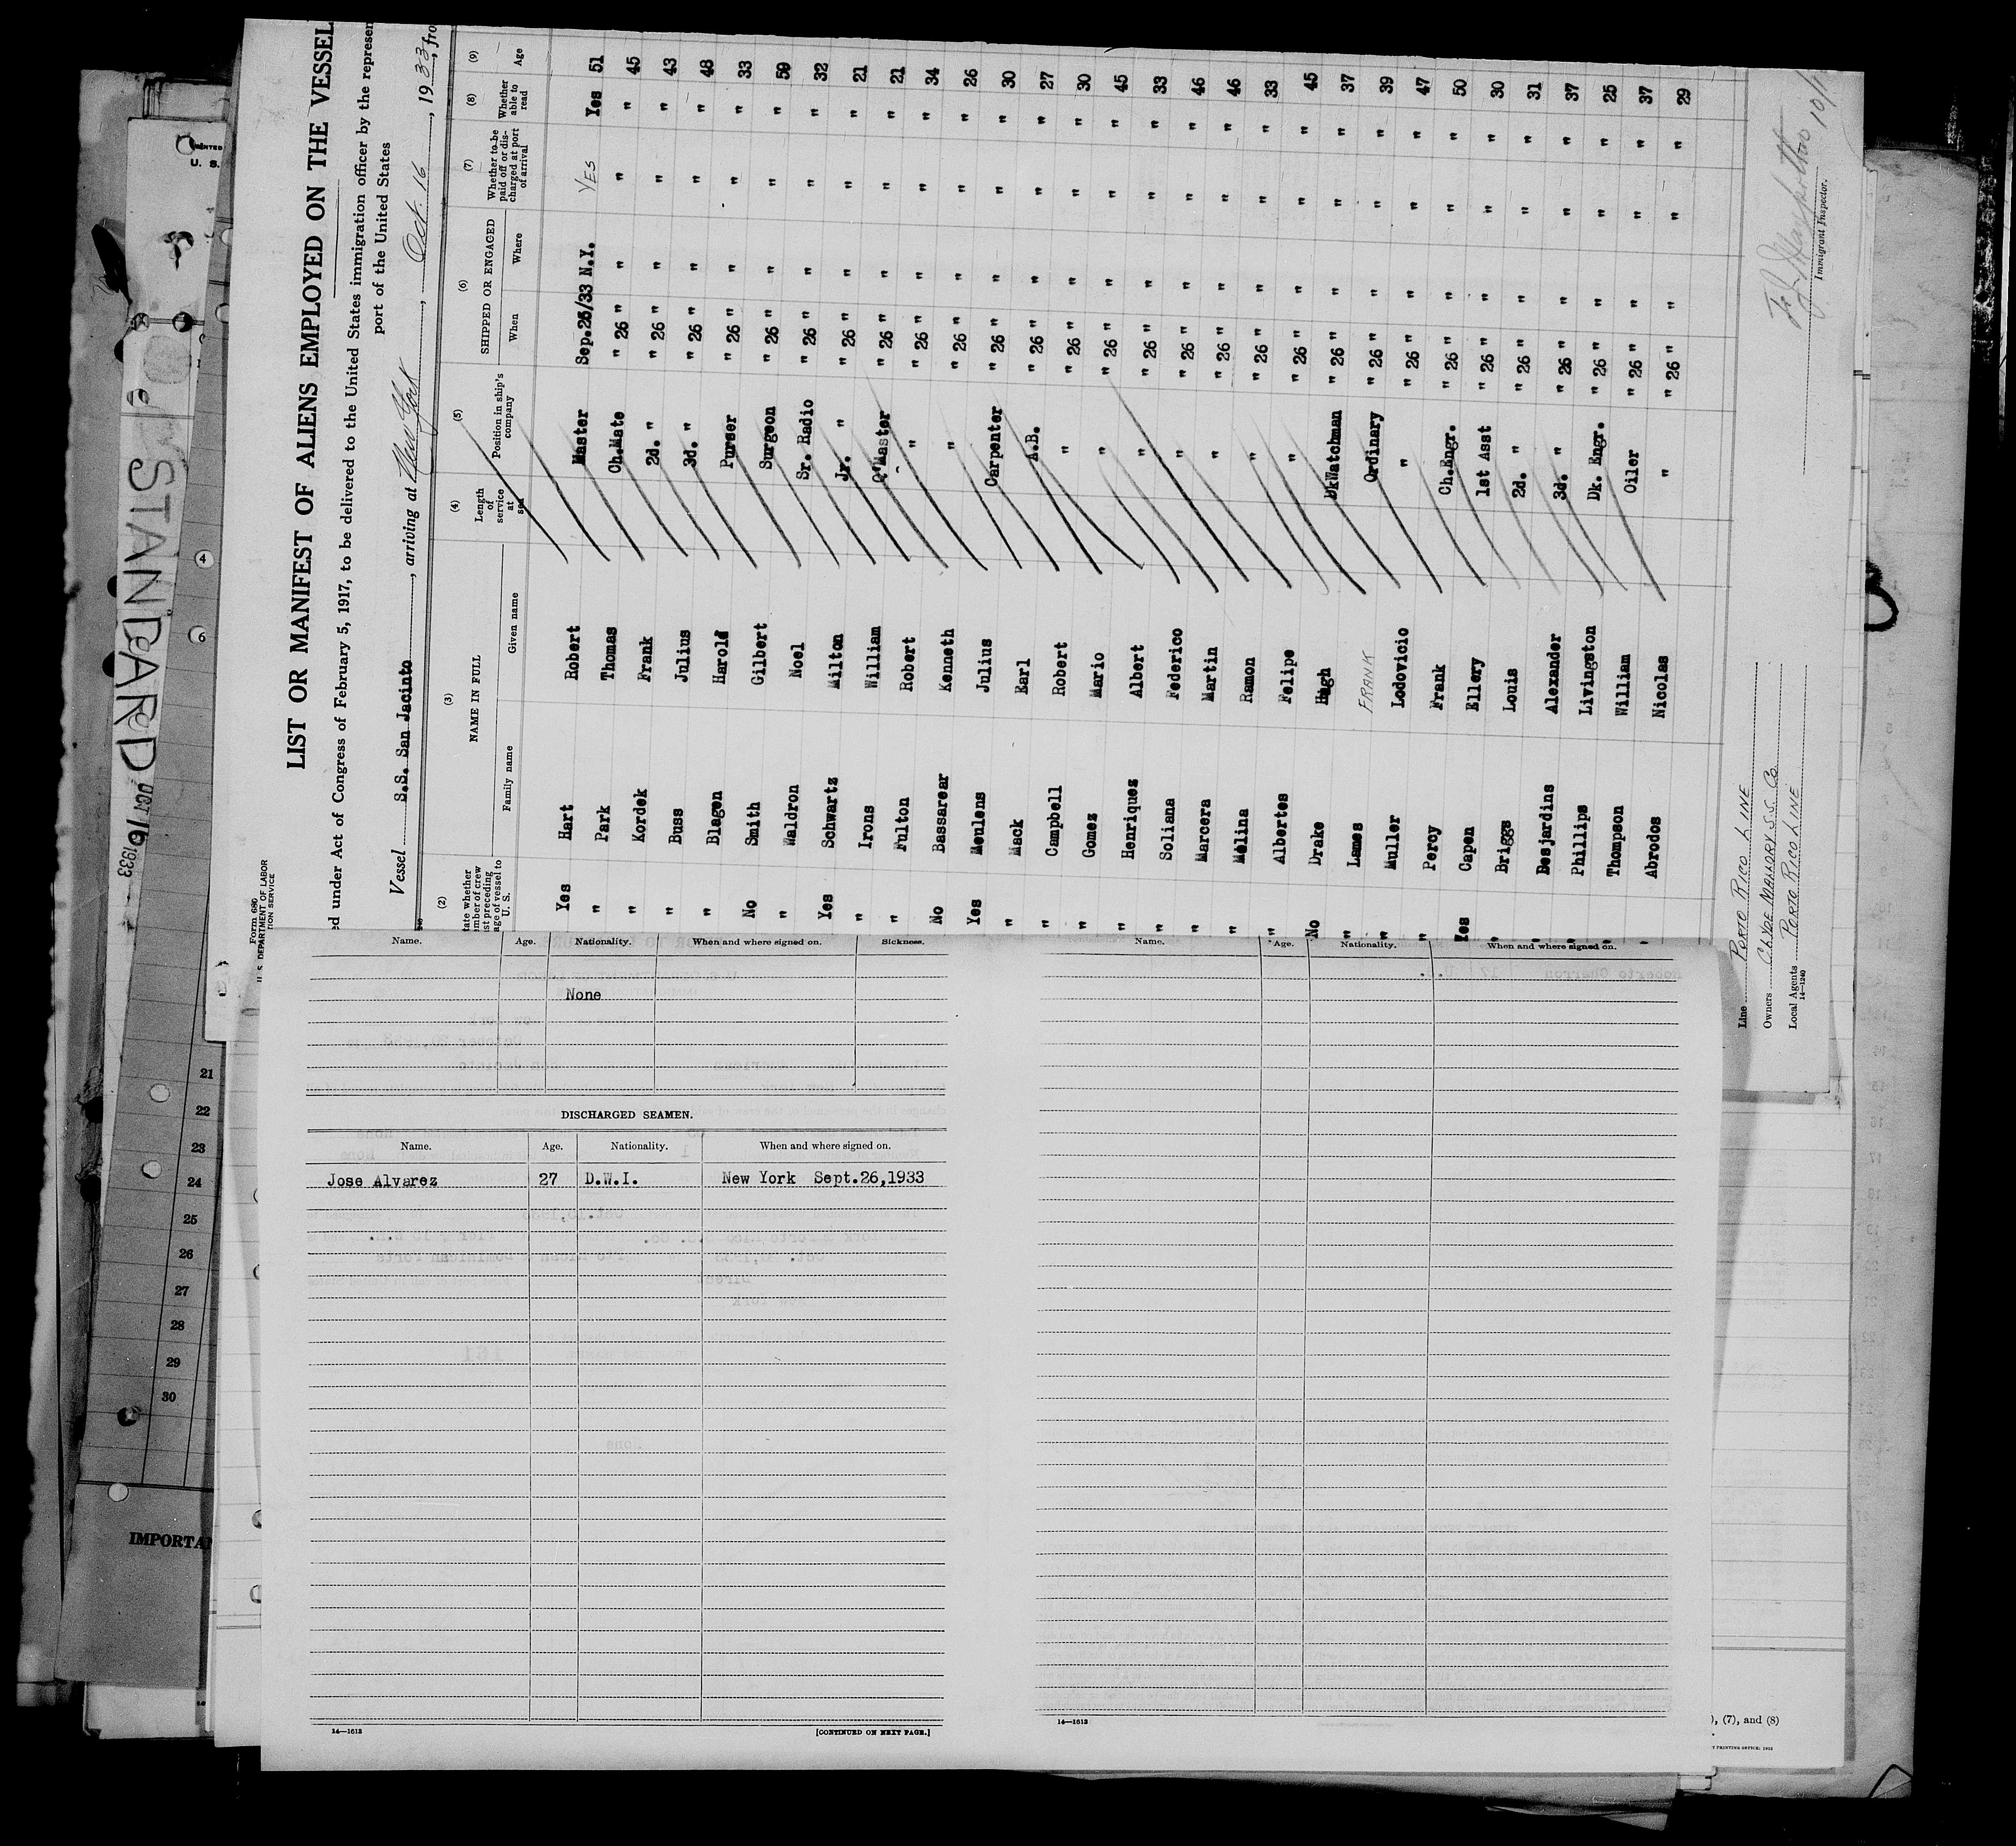 LIST OR MANIFEST OF ALIENS EMPLOYED ON THE VESSEL
ed under Act of Congress of February 5, 1917, to be delivered to the United States immigration officer by the represen
port of the United States
Form 680
U. S. DEPARTMENT OF LABOR
TION SERVICE
Vessel S.S. San Jacinto, arriving at New York, Oct. 16, 1933, fro
(2) (3) (4) (5) (6) (7) (8) (9)
tate whether
mber of crew
st preceding
age of vessel to
U. S.
NAME IN FULL
Family name Given name
Length of service at sea
Position in ship's company
SHIPPED OR ENGAGED
When Where
Whether to be paid off or discharged at port of arrival
Whether able to read
Age
Yes Hart Robert Master Sep.26/33 N.Y. YES Yes 51
" Park Thomas Ch.Mate " 26 " " " " 45
" Kordek Frank 2d. " " 26 " " " " 43
" Buss Julius 3d. " " 26 " " " " 48
" Blagen Harold Purser " 26 " " " " 33
No Smith Gilbert Surgeon " 26 " " " " 59
" Waldron Noel Sr. Radio " 26 " " " " 32
Yes Schwartz Milton Jr. " " 26 " " " " 21
" Irons William Q'Master " 26 " " " " 21
" Fulton Robert " " 26 " " " " 34
No Bassarear Kenneth " " 26 " " " " 26
Yes Meulens Julius Carpenter " 26 " " " " 30
" Mack Earl A.B. " 26 " " " " 27
" Campbell Robert " " 26 " " " " 30
" Gomez Mario " " 26 " " " " 45
" Henriques Albert " " 26 " " " " 33
" Soliana Federico " " 26 " " " " 46
" Marcera Martin " " 26 " " " " 46
" Molina Ramon " " 26 " " " " 33
" Albertes Felipe " " 26 " " " " 45
No Drake Hugh DkWatchman " 26 " " " " 37
" Lames FRANK Ordinary " 26 " " " " 39
" Muller Lodovicio " " 26 " " " " 47
" Percy Frank Ch.Engr. " 26 " " " " 50
Yes Capen Ellery 1st Asst " 26 " " " " 30
" Briggs Louis 2d. " " 26 " " " " 31
" Desjardins Alexander 3d. " " 26 " " " " 37
" Phillips Livingston Dk. Engr. " 26 " " " " 25
" Thompson William Oiler " 26 " " " " 37
" Abrodos Nicolas " " 26 " " " " 29
Line PORTO RICO LINE
Owners CLYDE MALLORY S.S. Co.
Local Agents PORTO RICO LINE
14—1240
Immigrant Inspector.
10/1
U. S.
STANDARD
OCT 16 1933
4
6
21
22
23
24
25
26
27
28
29
30
IMPORTAN
Name. Age. Nationality. When and where signed on. Sickness.
None
DISCHARGED SEAMEN.
Name. Age. Nationality. When and where signed on.
Jose Alvarez 27 D.W.I. New York Sept.26,1933
14—1613
[CONTINUED ON NEXT PAGE.]
Name. Age. Nationality. When and where signed on.
14—1613
), (7), and (8)